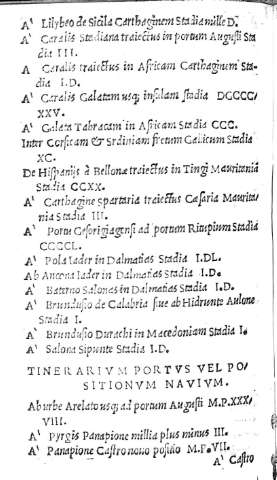 A' Lilybeo de Sicila Carthaginem Stadia mille D.
A' Caralis Stadiana traiectus in portum Augusti Sta
dia III.
A' Caralis traiectus in Africam Carthaginem Sta-
dia I.D.
A' Caralis Galatam usq; insulam stadia DCCCC/
XXV.
A' Galata Tabracam in Africam Stadia CCC.
Inter Corsicam & Srdiniam fretum Galicum Stadia
XC.
De Hispanijs à Bellona traiectus in Tingi Mauritania
Stadia CCXX.
A' Carthagine spartaria traiectus Cæsaria Maurita/
nia Stadia III.
A' Portu Gesorigiagensi ad portum Ritupium Stadia
CCCCL.
A' Pola Iader in Dalmatias Stadia I.DL.
Ab Ancona Iader in Dalmatias Stadia I.D.
A' Baterno Salonas in Dalmatias Stadia I.D.
A' Brundusio de Calabria siue ab Hidrunte Aulona
Stadia I.
A' Brundusio Durachi in Macedoniam Stadia I.
A' Salona Sipunte Stadia I.D.
TINERARIVM PORTVS VEL PO/
SITIONVM NAVIVM.
Ab urbe Arelato usq; ad portum Augusti M.P.XXX/
VIII.
A' Pyrgis Panapione millia plus minus III.
A' Panapione Castro nouo positio M.P.VII.
A' Castro